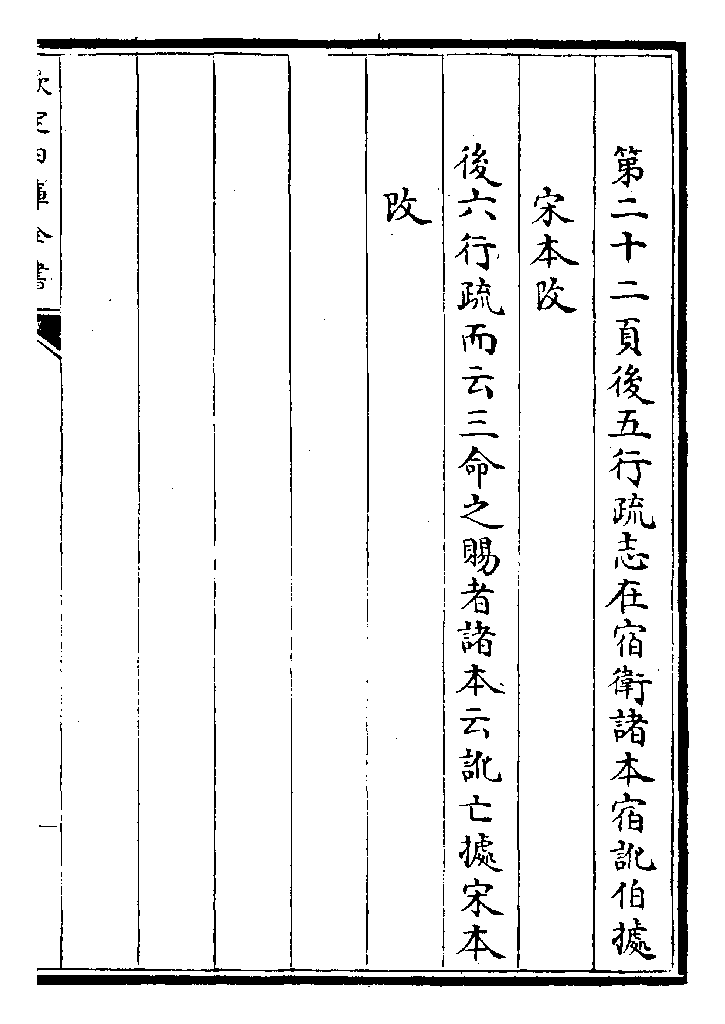 第二十二頁後五行疏志在宿衛諸本宿訛伯據
宋本改
後六行疏而云三命之賜者諸本云訛亡據宋本
改
欽定四庫全書
一